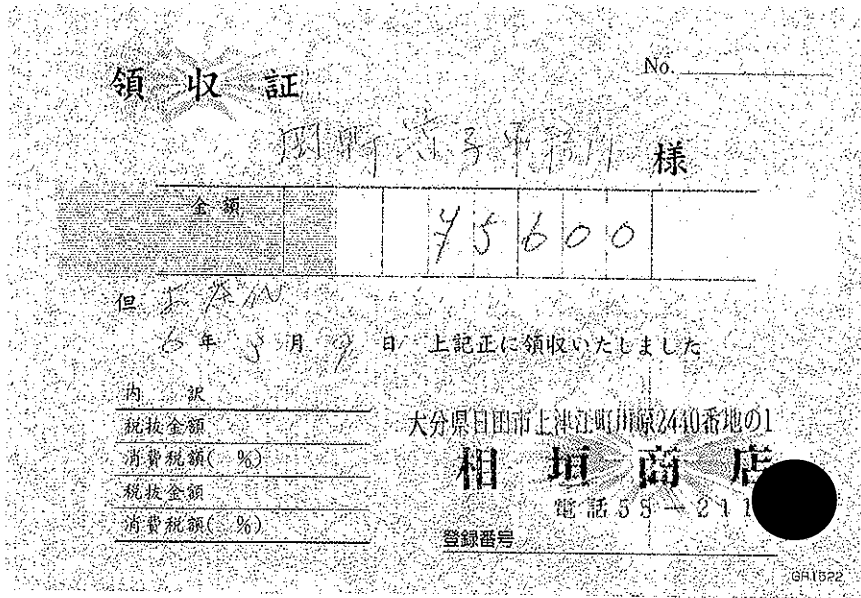 領 収 証
No.
様
金額
¥5600
但 お茶代
6年 5月 9日 上記正に領収いたしました
内 訳
税抜金額
消費税額( %)
税抜金額
消費税額( %)
大分県日田市上津江町川原2440番地の1
相垣商店
電話55-211
登録番号
GR1522